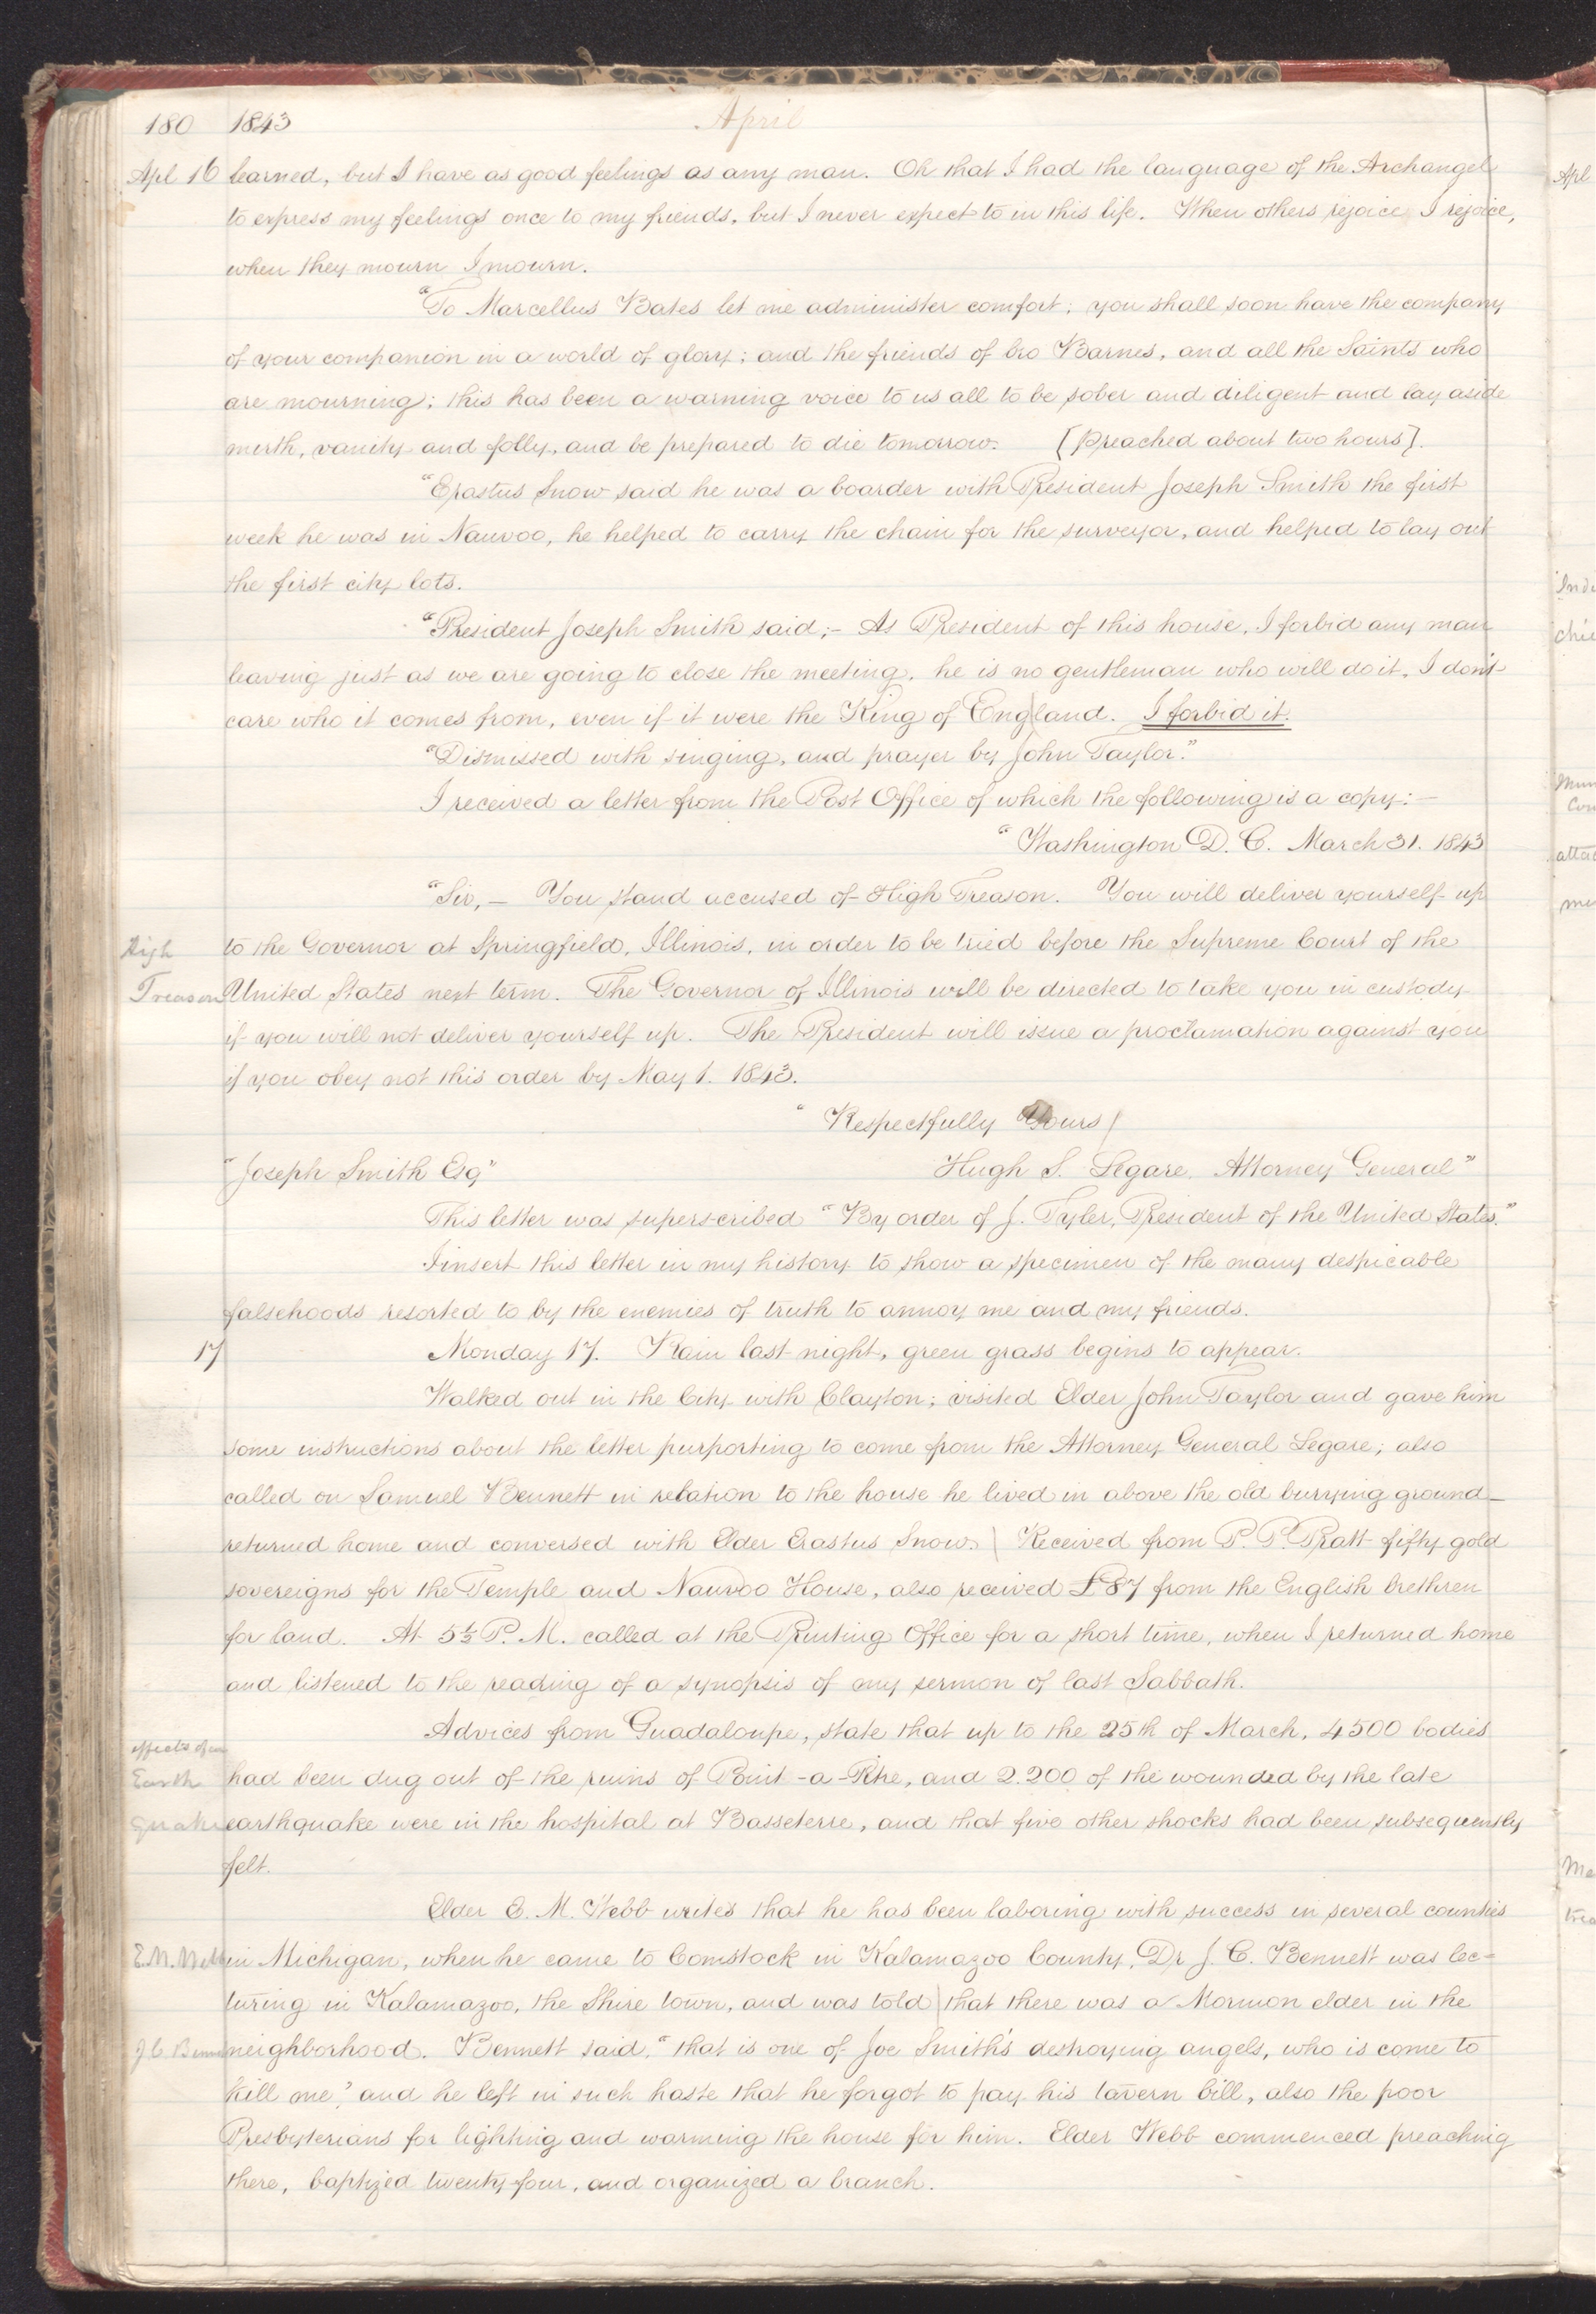 180 1843 April
Apl 16 learned, but I have as good feelings as any man. Oh that I had the language of the Archangel
to express my feelings once to my friends, but I never expect to in this life. When others rejoice I rejoice,
when they mourn I mourn.
"To Marcellus Bates let me administer comfort; you shall soon have the company
of your companion in a world of glory; and the friends of bro Barnes, and all the Saints who
are mourning; this has been a warning voice to us all to be sober and diligent and lay aside
mirth, vanity and folly, and be prepared to die tomorrow. [preached about two hours].
"Erastus Snow said he was a boarder with President Joseph Smith the first
week he was in Nauvoo, he helped to carry the chain for the surveyor, and helped to lay out
the first city lots.
"President Joseph Smith said;– As President of this house, I forbid any man
leaving just as we are going to close the meeting, he is no gentleman who will do it, I don't
care who it comes from, even if it were the King of England. I forbid it.
"Dismissed with singing, and prayer by John Taylor."
I received a letter from the Post Office of which the following is a copy:–
"Washington D. C. March 31. 1843
"Sir,– You stand accused of High Treason. You will deliver yourself up
High to the Governor at Springfield, Illinois, in order to be tried before the Supreme Court of the
Treason United States next term. The Governor of Illinois will be directed to take you in custody
if you will not deliver yourself up. The President will issue a proclamation against you
if you obey not this order by May 1. 1843.
"Respectfully Yours
"Joseph Smith Esq" Hugh S. Legare, Attorney General"
This letter was superscribed "By order of J. Tyler, President of the United States."
I insert this letter in my history to show a specimen of the many despicable
falsehoods resorted to by the enemies of truth to annoy me and my friends.
17 Monday 17. Rain last night, green grass begins to appear.
Walked out in the City with Clayton; visited Elder John Taylor and gave him
some instructions about the letter purporting to come from the Attorney General Legare; also
called on Samuel Bennett in relation to the house he lived in above the old burying ground–
returned home and conversed with Elder Erastus Snow. Received from P. P. Pratt fifty gold
sovereigns for the Temple and Nauvoo House, also received £87 from the English brethren
for land. At 5½ P. M. called at the Printing Office for a short time, when I returned home
and listened to the reading of a synopsis of my sermon of last Sabbath.
Advices from Guadaloupe, state that up to the 25th of March, 4500 bodies
effects of
Earth had been dug out of the ruins of Point-a-Petre, and 2.200 of the wounded by the late
quake earthquake were in the hospital at Basseterre, and that five other shocks had been subsequently
felt.
Elder E. M. Webb writes that he has been laboring with success in several counties
E. M. Webb in Michigan, when he came to Comstock in Kalamazoo County, Dr J. C. Bennett was lec=
turing in Kalamazoo, the Shire town, and was told that there was a Mormon elder in the
J C Benn neighborhood. Bennett said, "that is one of Joe Smith's destroying angels, who is come to
kill me", and he left in such haste that he forgot to pay his tavern bill, also the poor
Presbyterians for lighting and warming the house for him. Elder Webb commenced preaching
there, baptized twenty-four, and organized a branch.
Apl